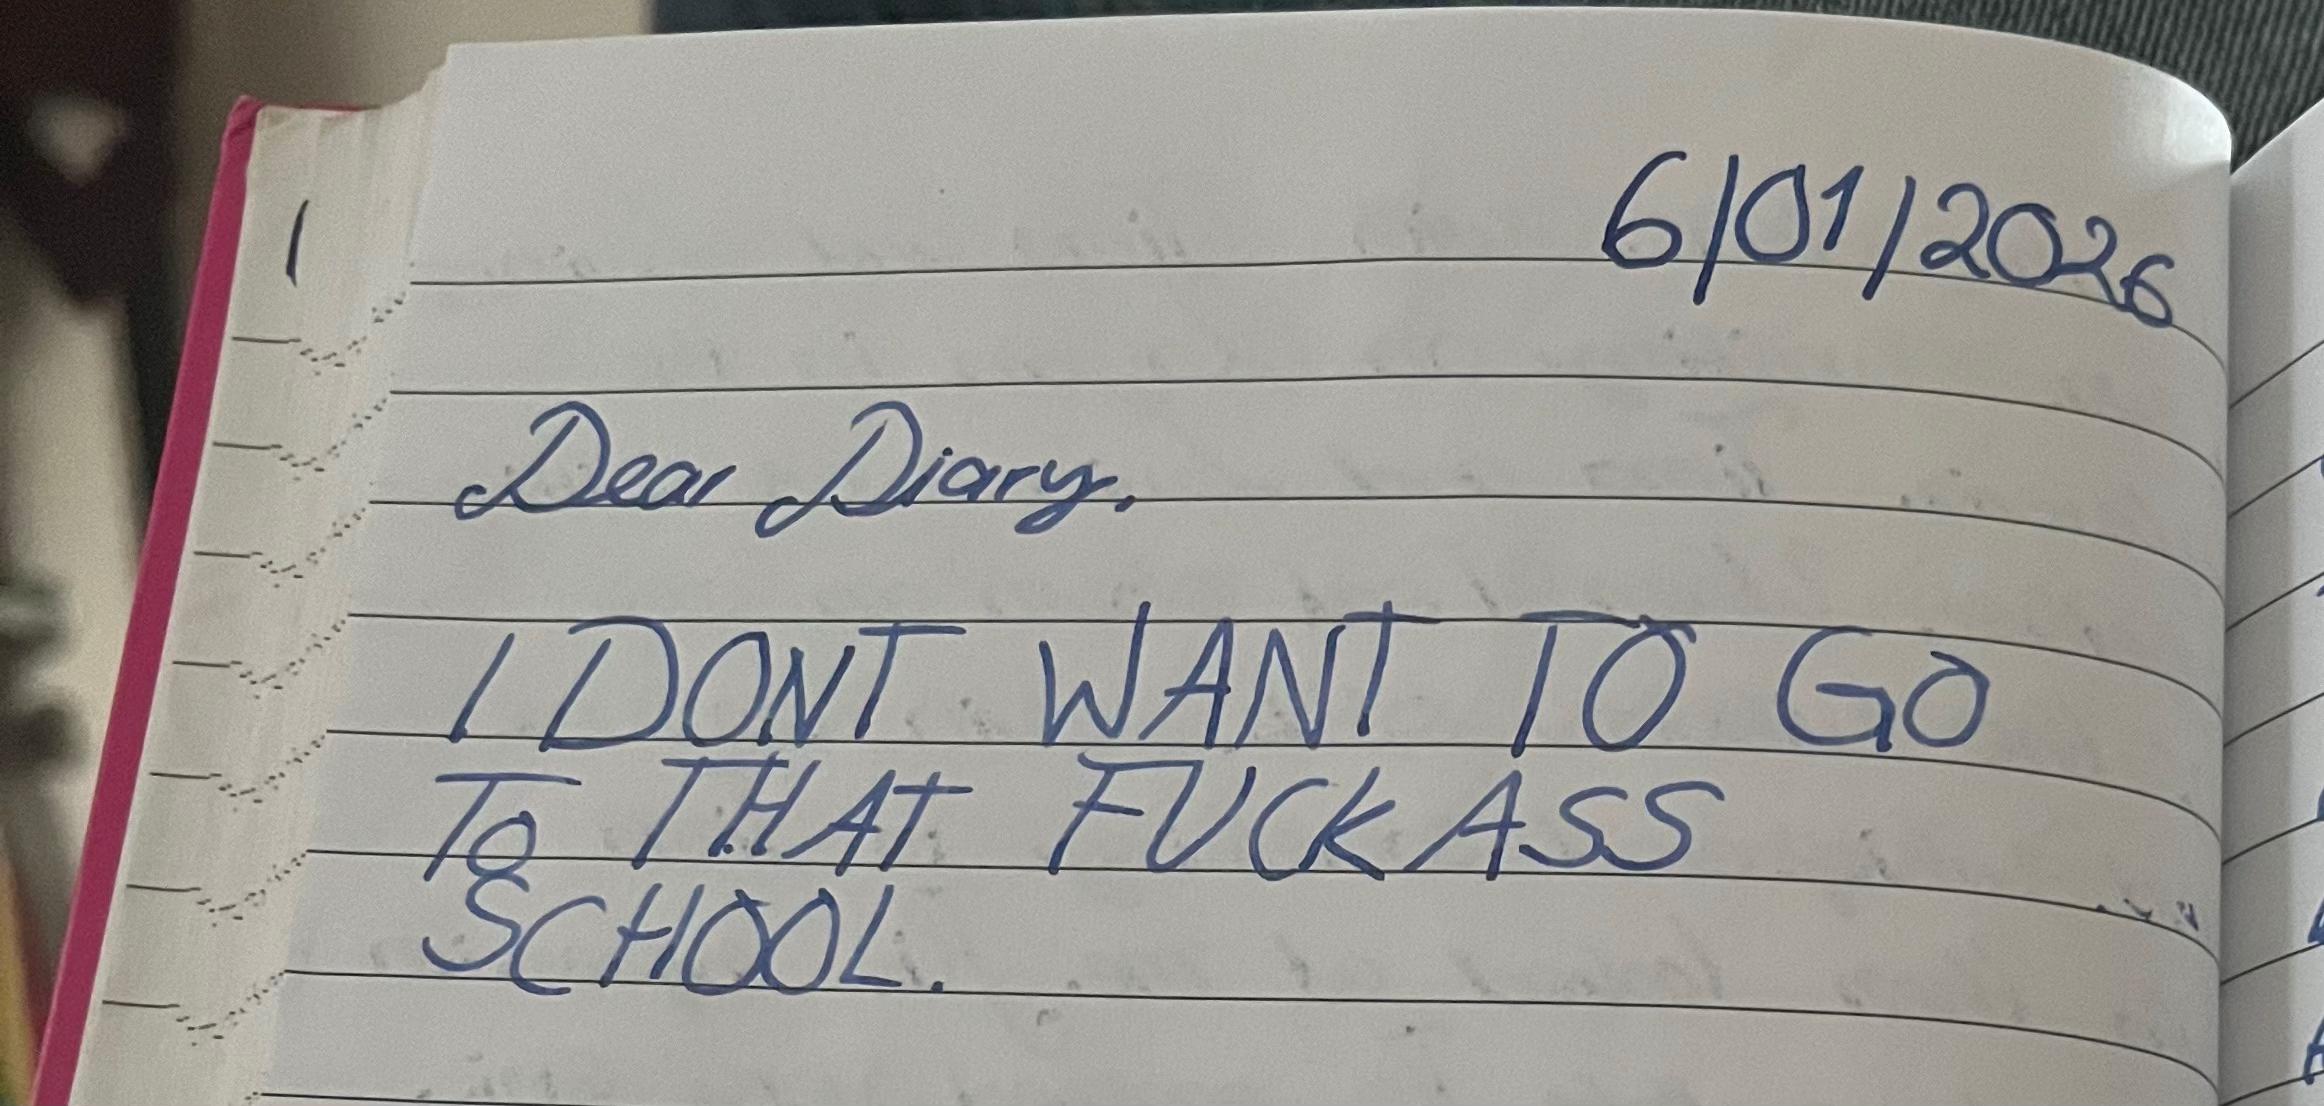 6/01/2026
Dear Diary,
I DONT WANT TO GO
TO THAT FUCKASS
SCHOOL.